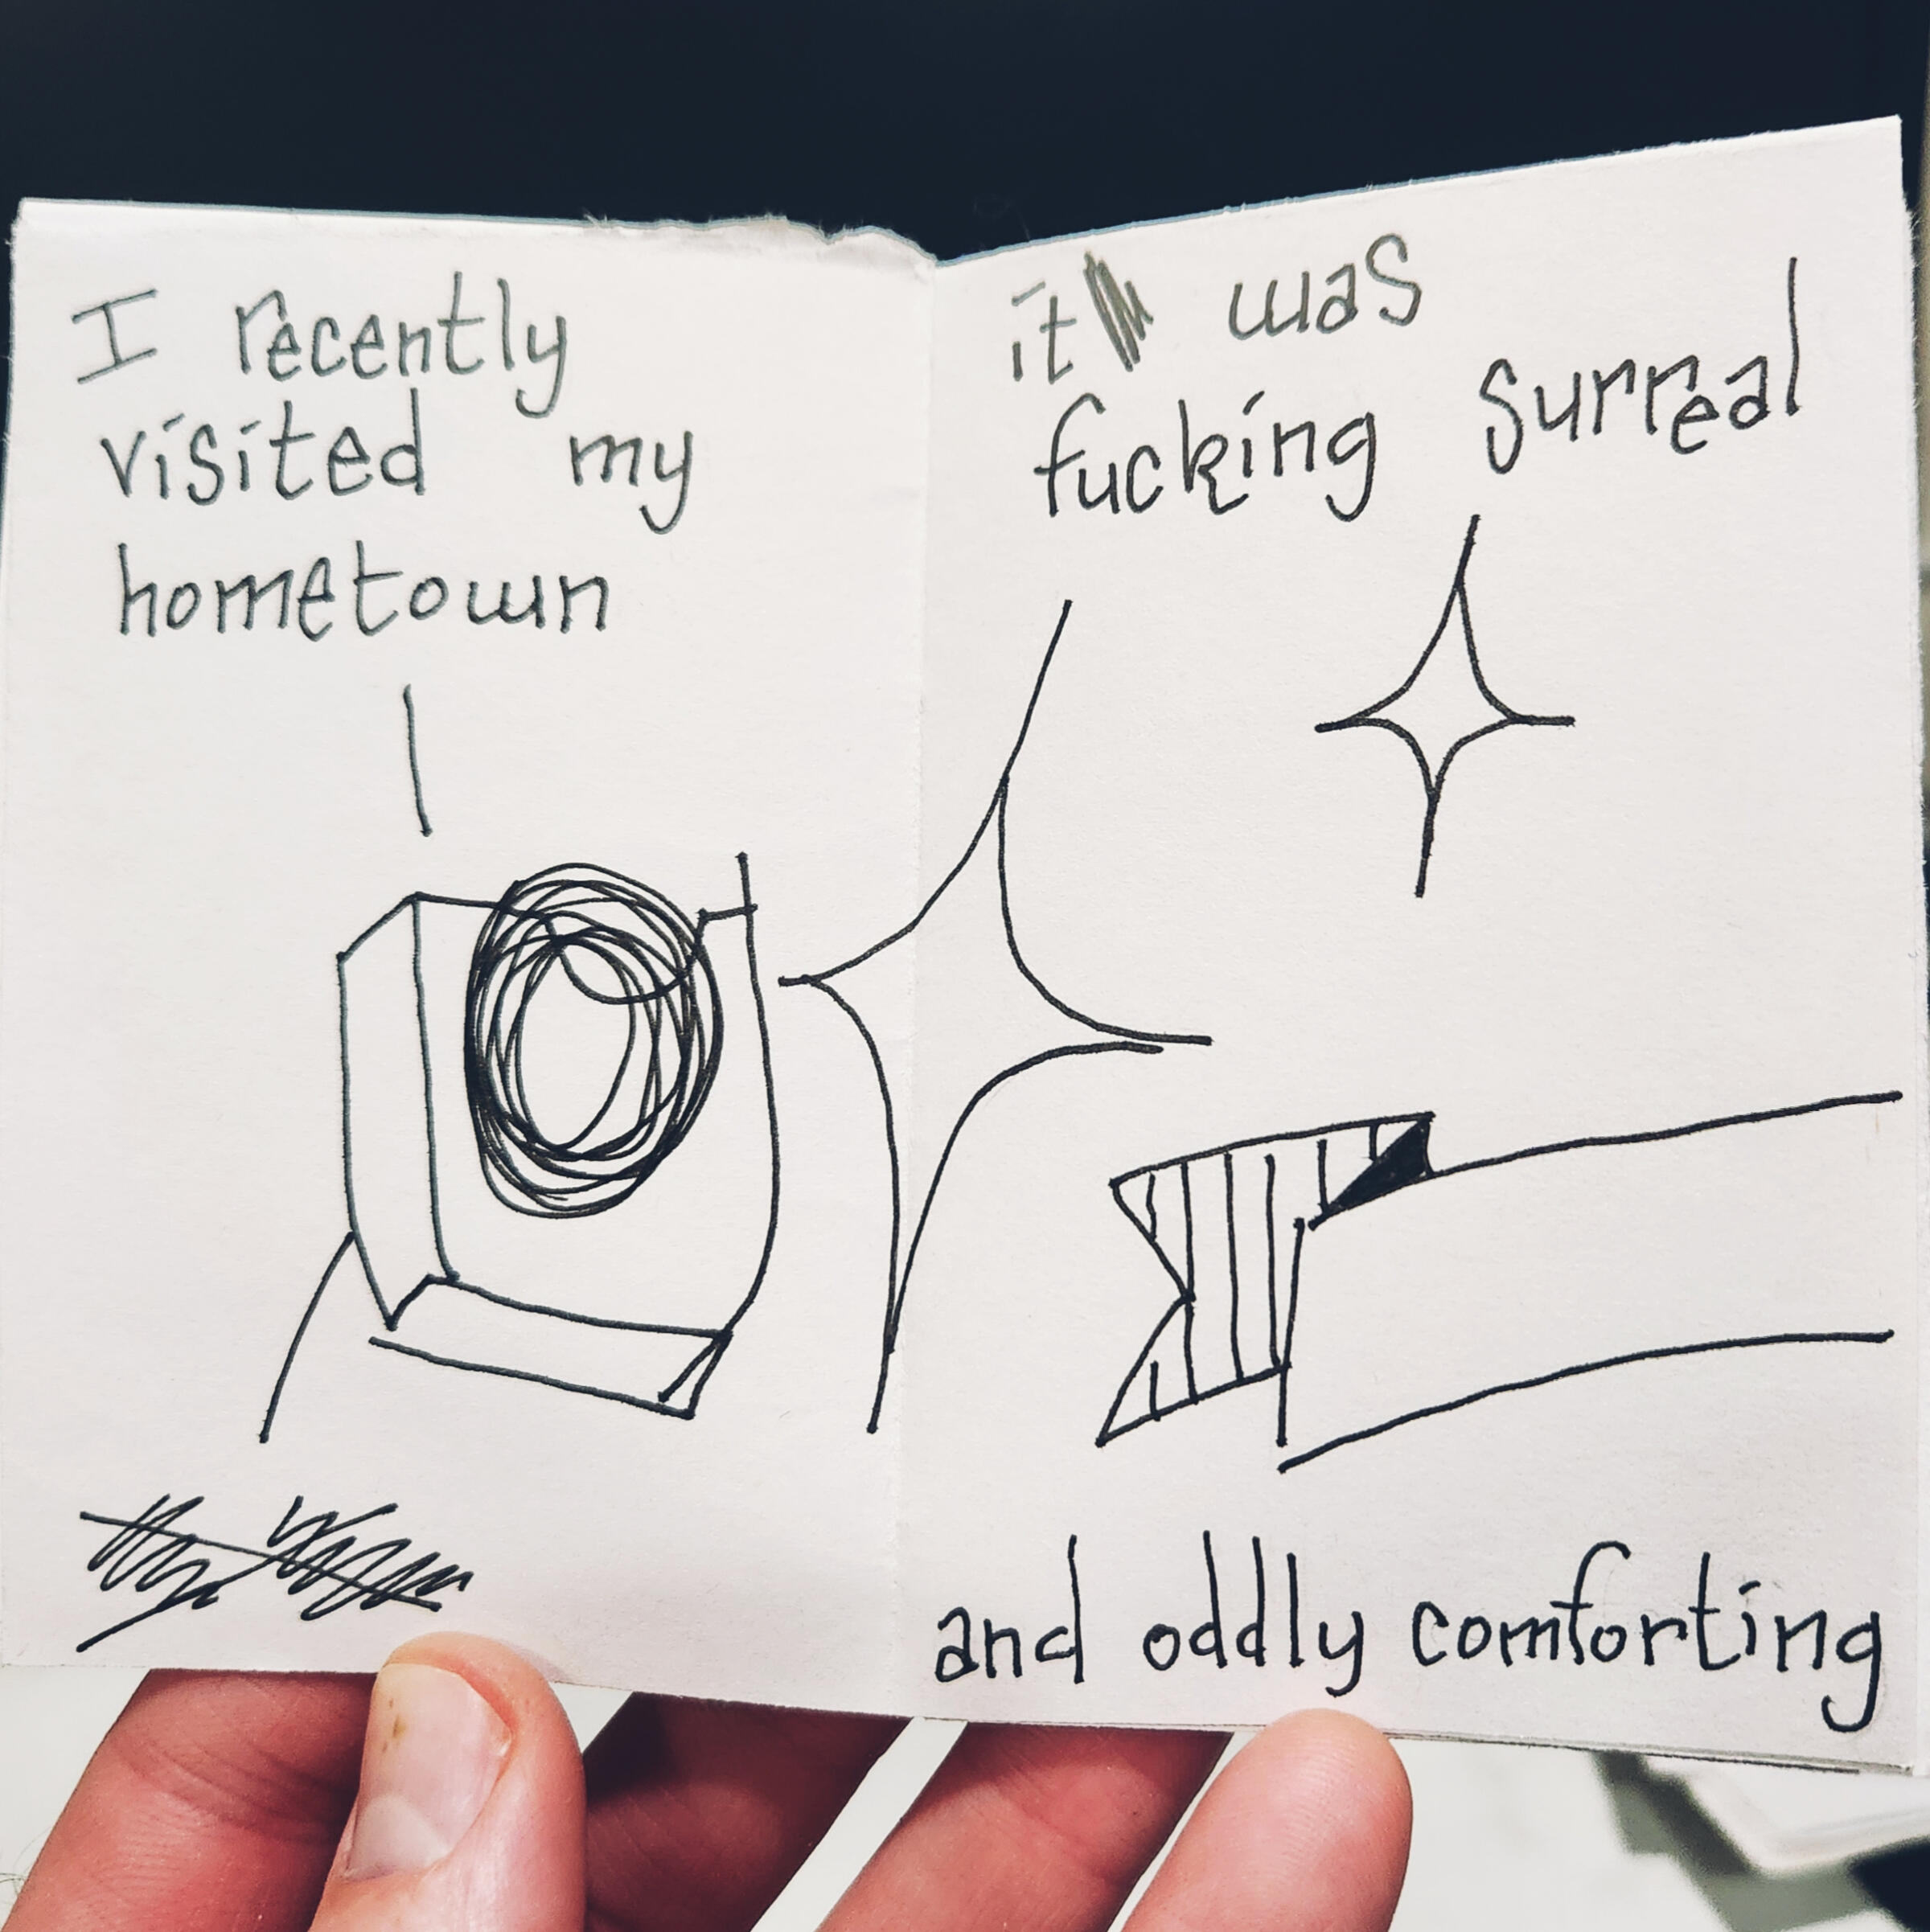 I recently
visited my
hometown
it was
fucking surreal
and oddly comforting